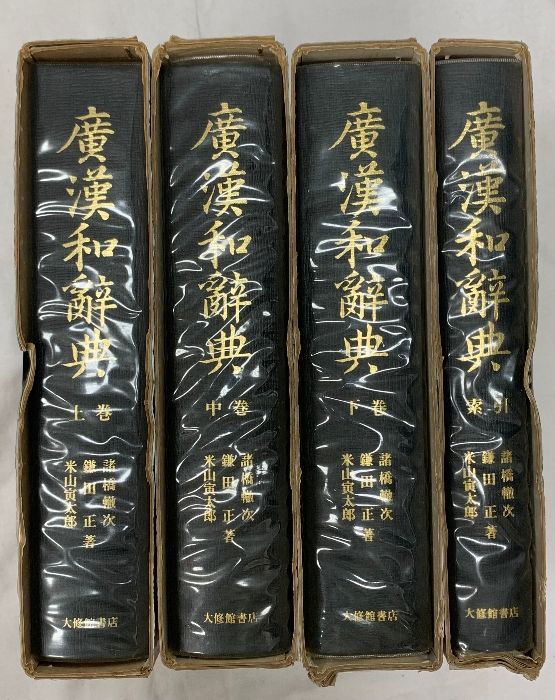 廣漢和辭典
上巻
諸橋轍次
鎌田正
米山寅太郎
著
大修館書店
廣漢和辭典
中巻
諸橋轍次
鎌田正
米山寅太郎
著
大修館書店
廣漢和辭典
下巻
諸橋轍次
鎌田正
米山寅太郎
著
大修館書店
廣漢和辭典
索引
諸橋轍次
鎌田正
米山寅太郎
著
大修館書店